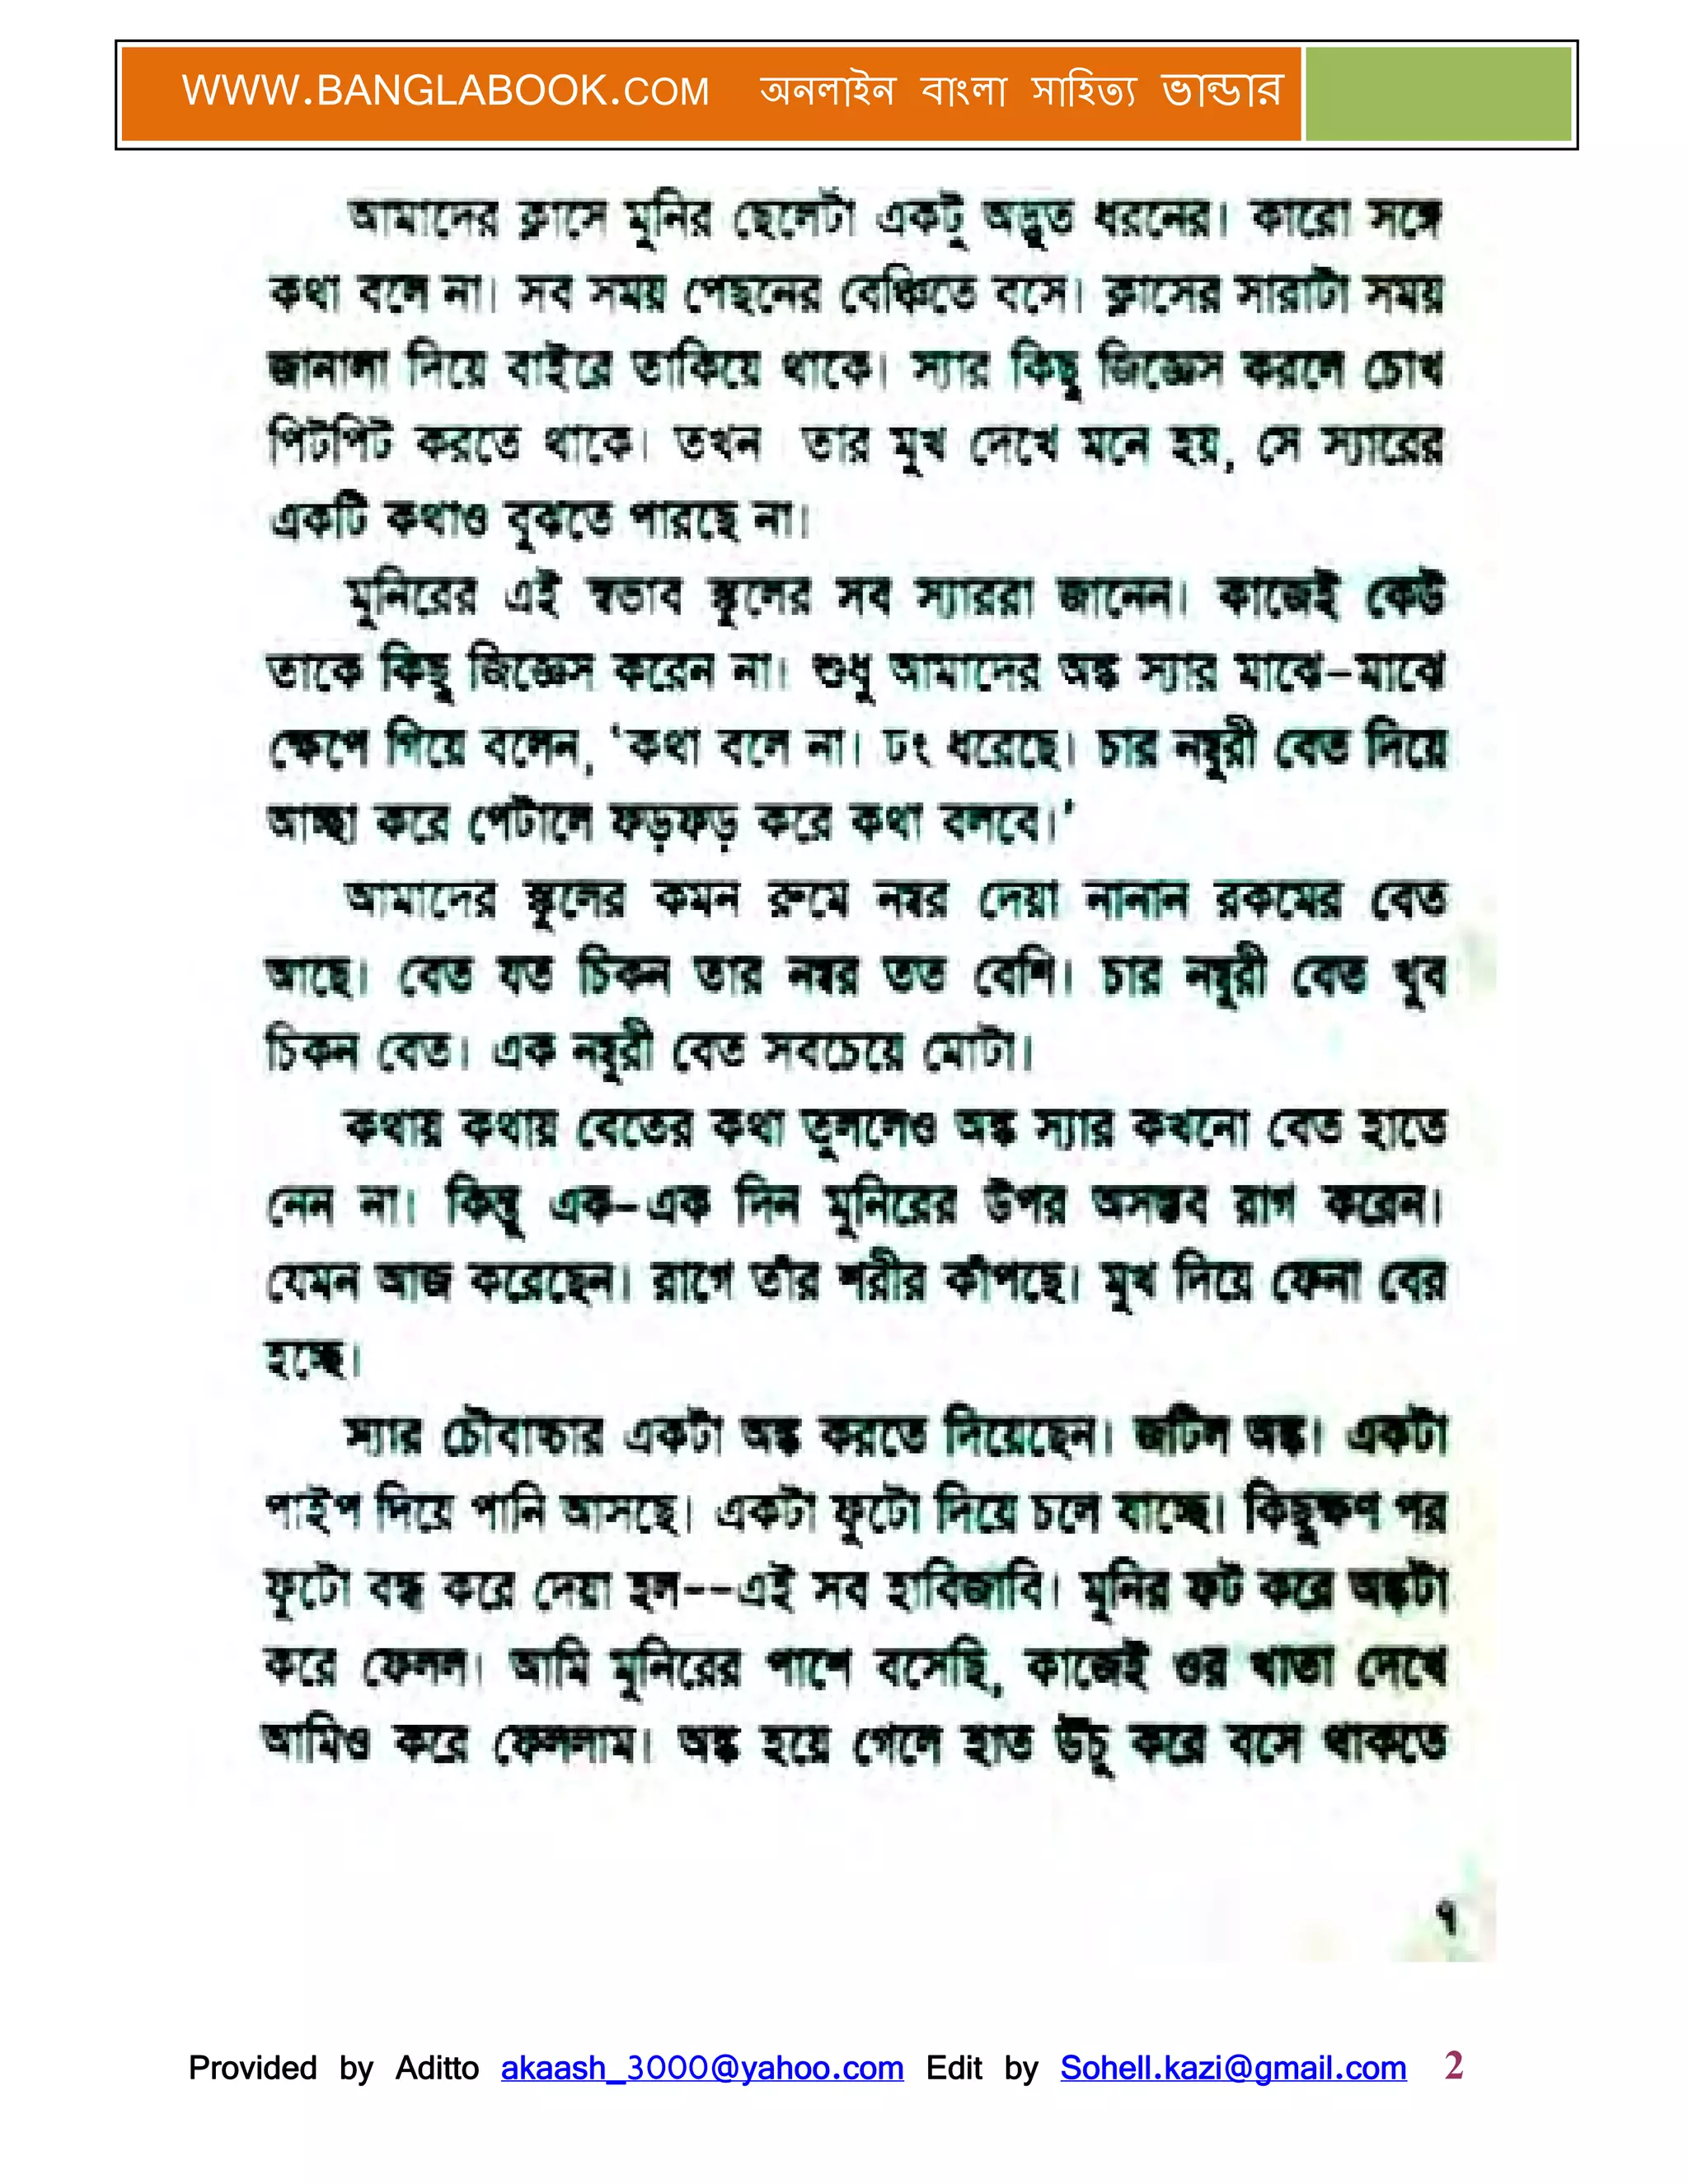 WWW.BANGLABOOK.COM অনলাইন বাংলা সাহিত্য ভান্ডার
আমাদের ক্লাসে মুনির ছেলেটা একটু অদ্ভুত ধরনের। কারো সঙ্গে
কথা বলে না। সব সময় পেছনের বেঞ্চিতে বসে। ক্লাসের সারাটা সময়
জানালা দিয়ে বাইরে তাকিয়ে থাকে। স্যার কিছু জিজ্ঞেস করলে চোখ
পিটপিট করতে থাকে। তখন তার মুখ দেখে মনে হয়, সে স্যারের
একটি কথাও বুঝতে পারছে না।
মুনিরের এই স্বভাব স্কুলের সব স্যাররা জানেন। কাজেই কেউ
তাকে কিছু জিজ্ঞেস করেন না। শুধু আমাদের অঙ্ক স্যার মাঝে-মাঝে
ক্ষেপে গিয়ে বলেন, ‘কথা বলে না। ঢং ধরেছে। চার নম্বুরী বেত দিয়ে
আচ্ছা করে পেটালে ফড়ফড় করে কথা বলবে।’
আমাদের স্কুলের কমন রুমে নম্বর দেয়া নানান রকমের বেত
আছে। বেত যত চিকন তার নম্বর তত বেশি। চার নম্বুরী বেত খুব
চিকন বেত। এক নম্বুরী বেত সবচেয়ে মোটা।
কথায় কথায় বেতের কথা তুললেও অঙ্ক স্যার কখনো বেত হাতে
নেন না। কিন্তু এক-এক দিন মুনিরের উপর অসম্ভব রাগ করেন।
যেমন আজ করেছেন। রাগে তাঁর শরীর কাঁপছে। মুখ দিয়ে ফেনা বের
হচ্ছে।
স্যার চৌবাচ্চার একটা অঙ্ক করতে দিয়েছেন। জটিল অঙ্ক। একটা
পাইপ দিয়ে পানি আসছে। একটা ফুটো দিয়ে চলে যাচ্ছে। কিছুক্ষণ পর
ফুটো বন্ধ করে দেয়া হল--এই সব হাবিজাবি। মুনির ফট করে অঙ্কটা
করে ফেলল। আমি মুনিরের পাশে বসেছি, কাজেই ওর খাতা দেখে
আমিও করে ফেললাম। অঙ্ক হয়ে গেলে হাত উঁচু করে বসে থাকতে
৭
Provided by Aditto akaash_3000@yahoo.com Edit by Sohell.kazi@gmail.com 2